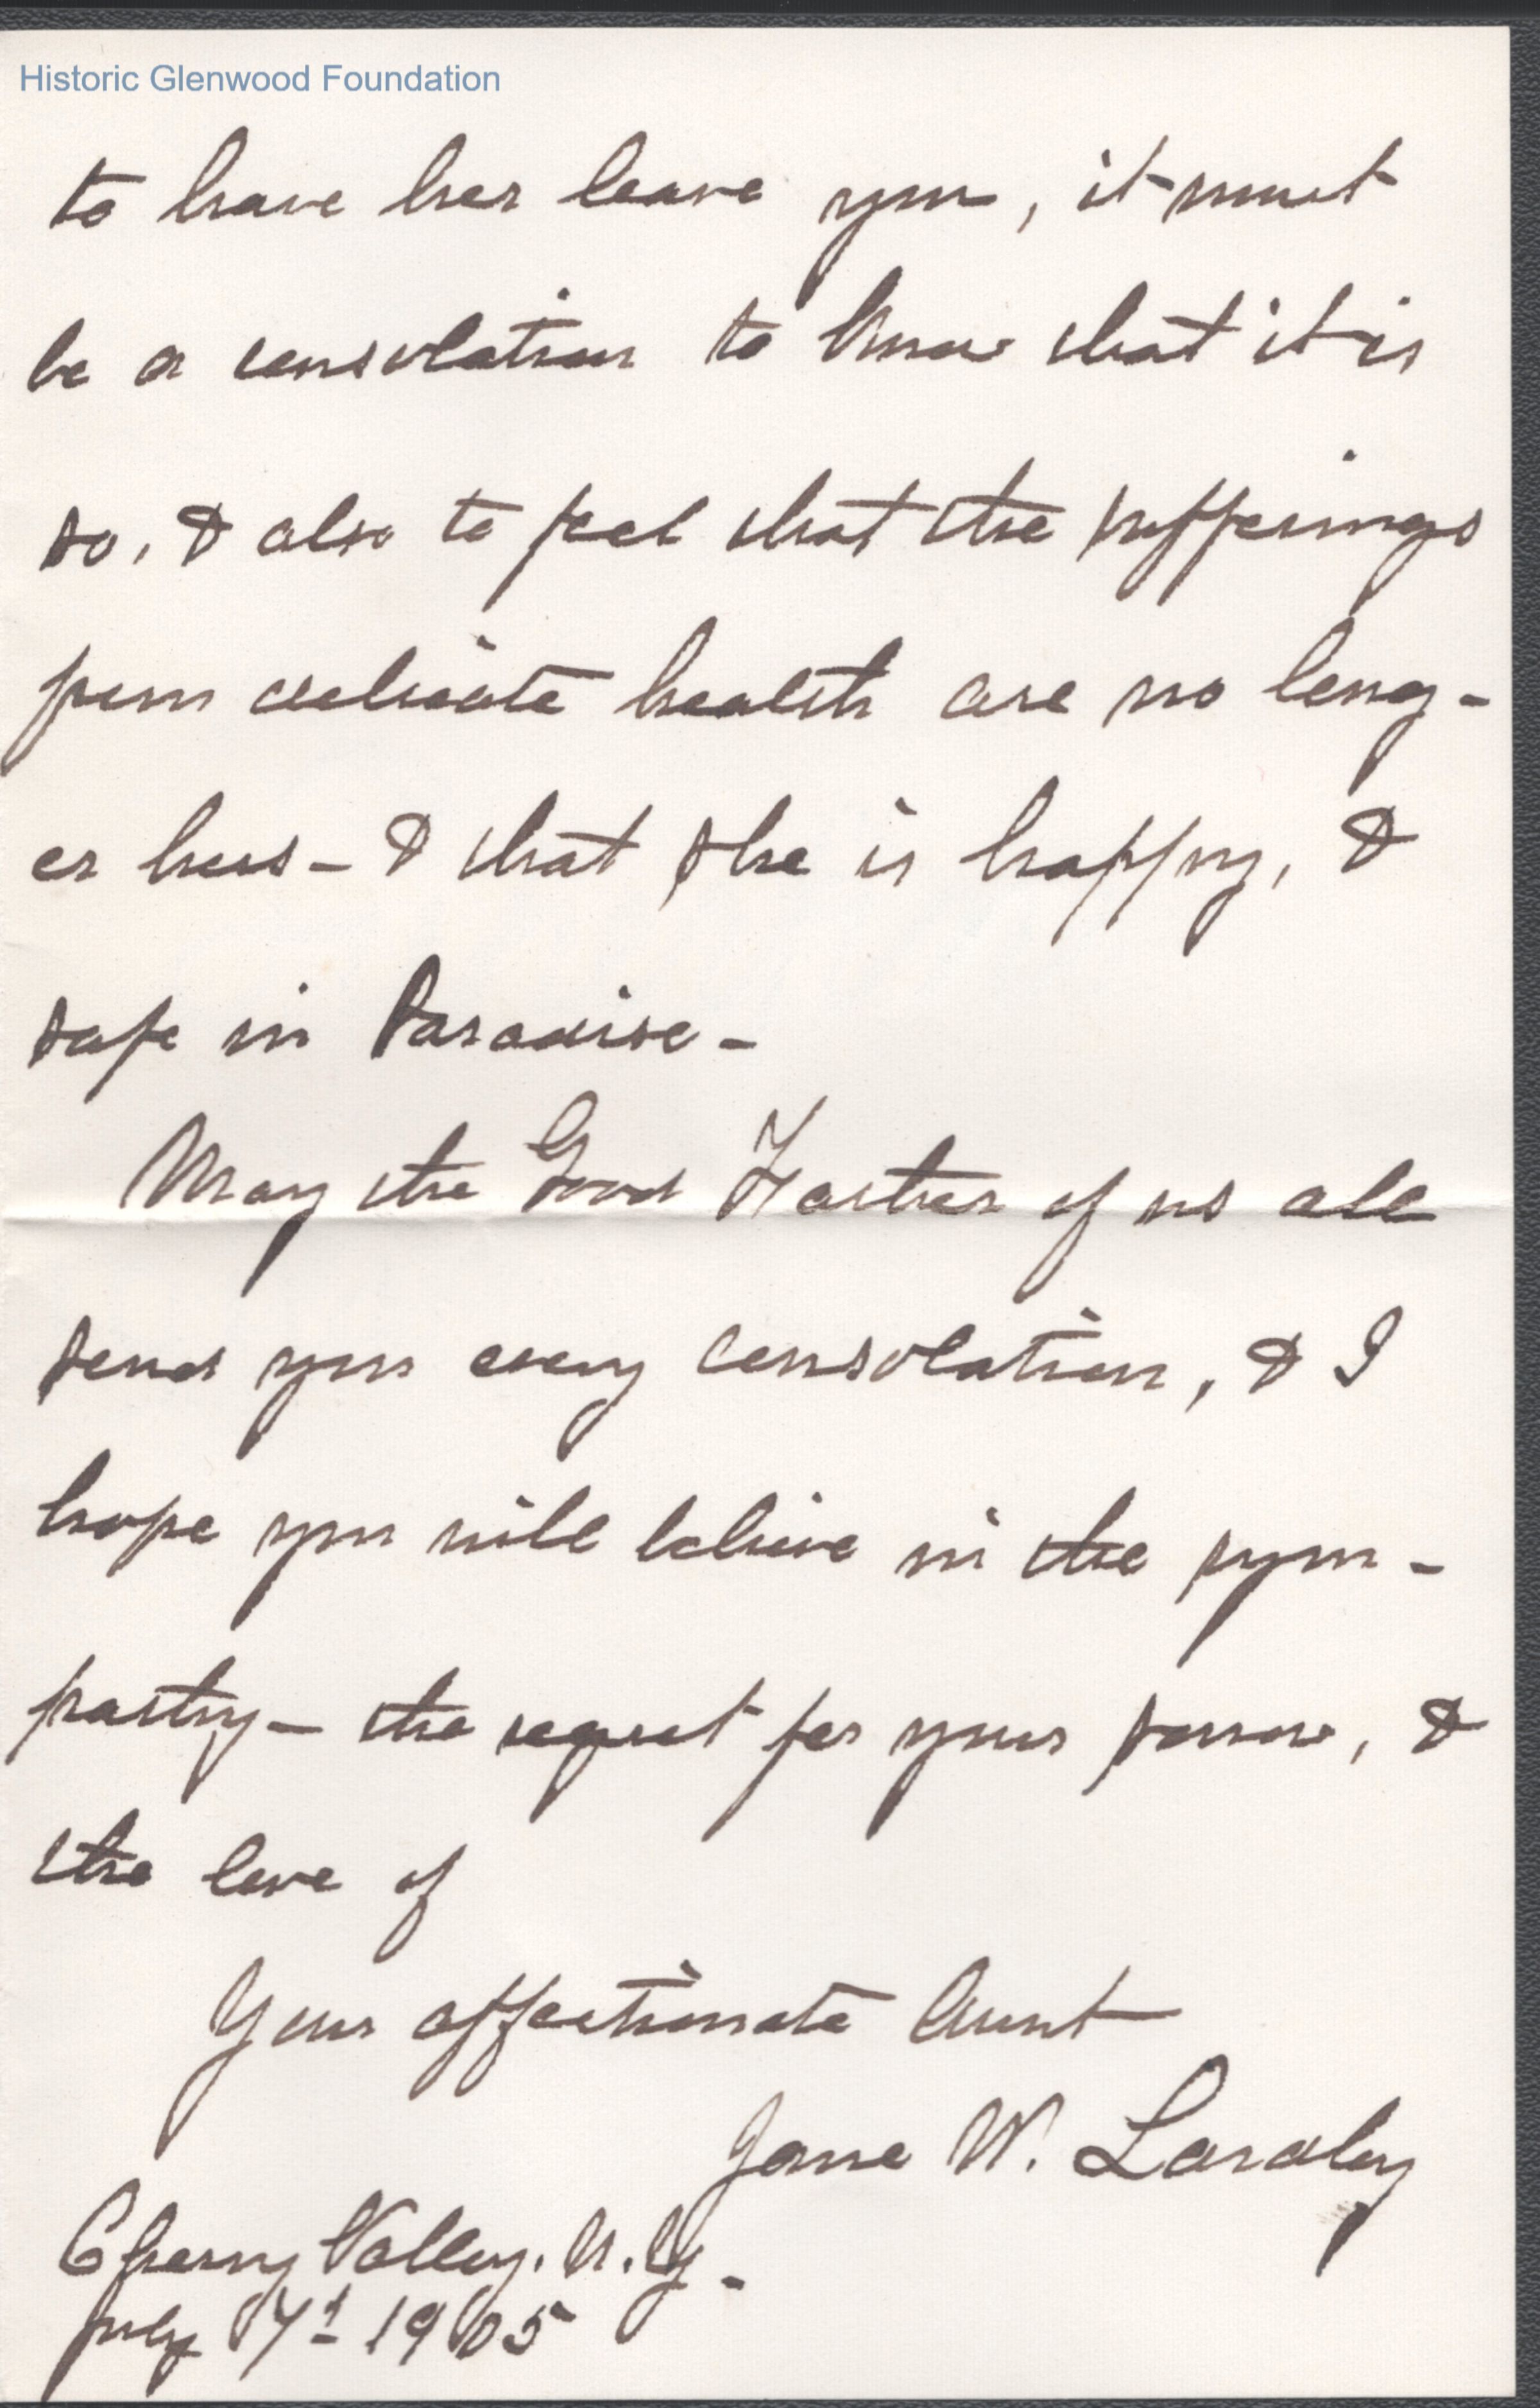 Historic Glenwood Foundation
to have her leave you, it must
be a consolation to know that it is
so, & also to feel that the sufferings
from delicate health are no long-
er hers - & that she is happy, &
safe in Paradise -
May the Good Father of us all
send you every consolation, & I
hope you will believe in the sym-
pathy - the regret for your sorrow, &
the love of
Your affectionate Aunt
Jane W. Lardley
Cherry Valley. N.Y.
July 7th 1905